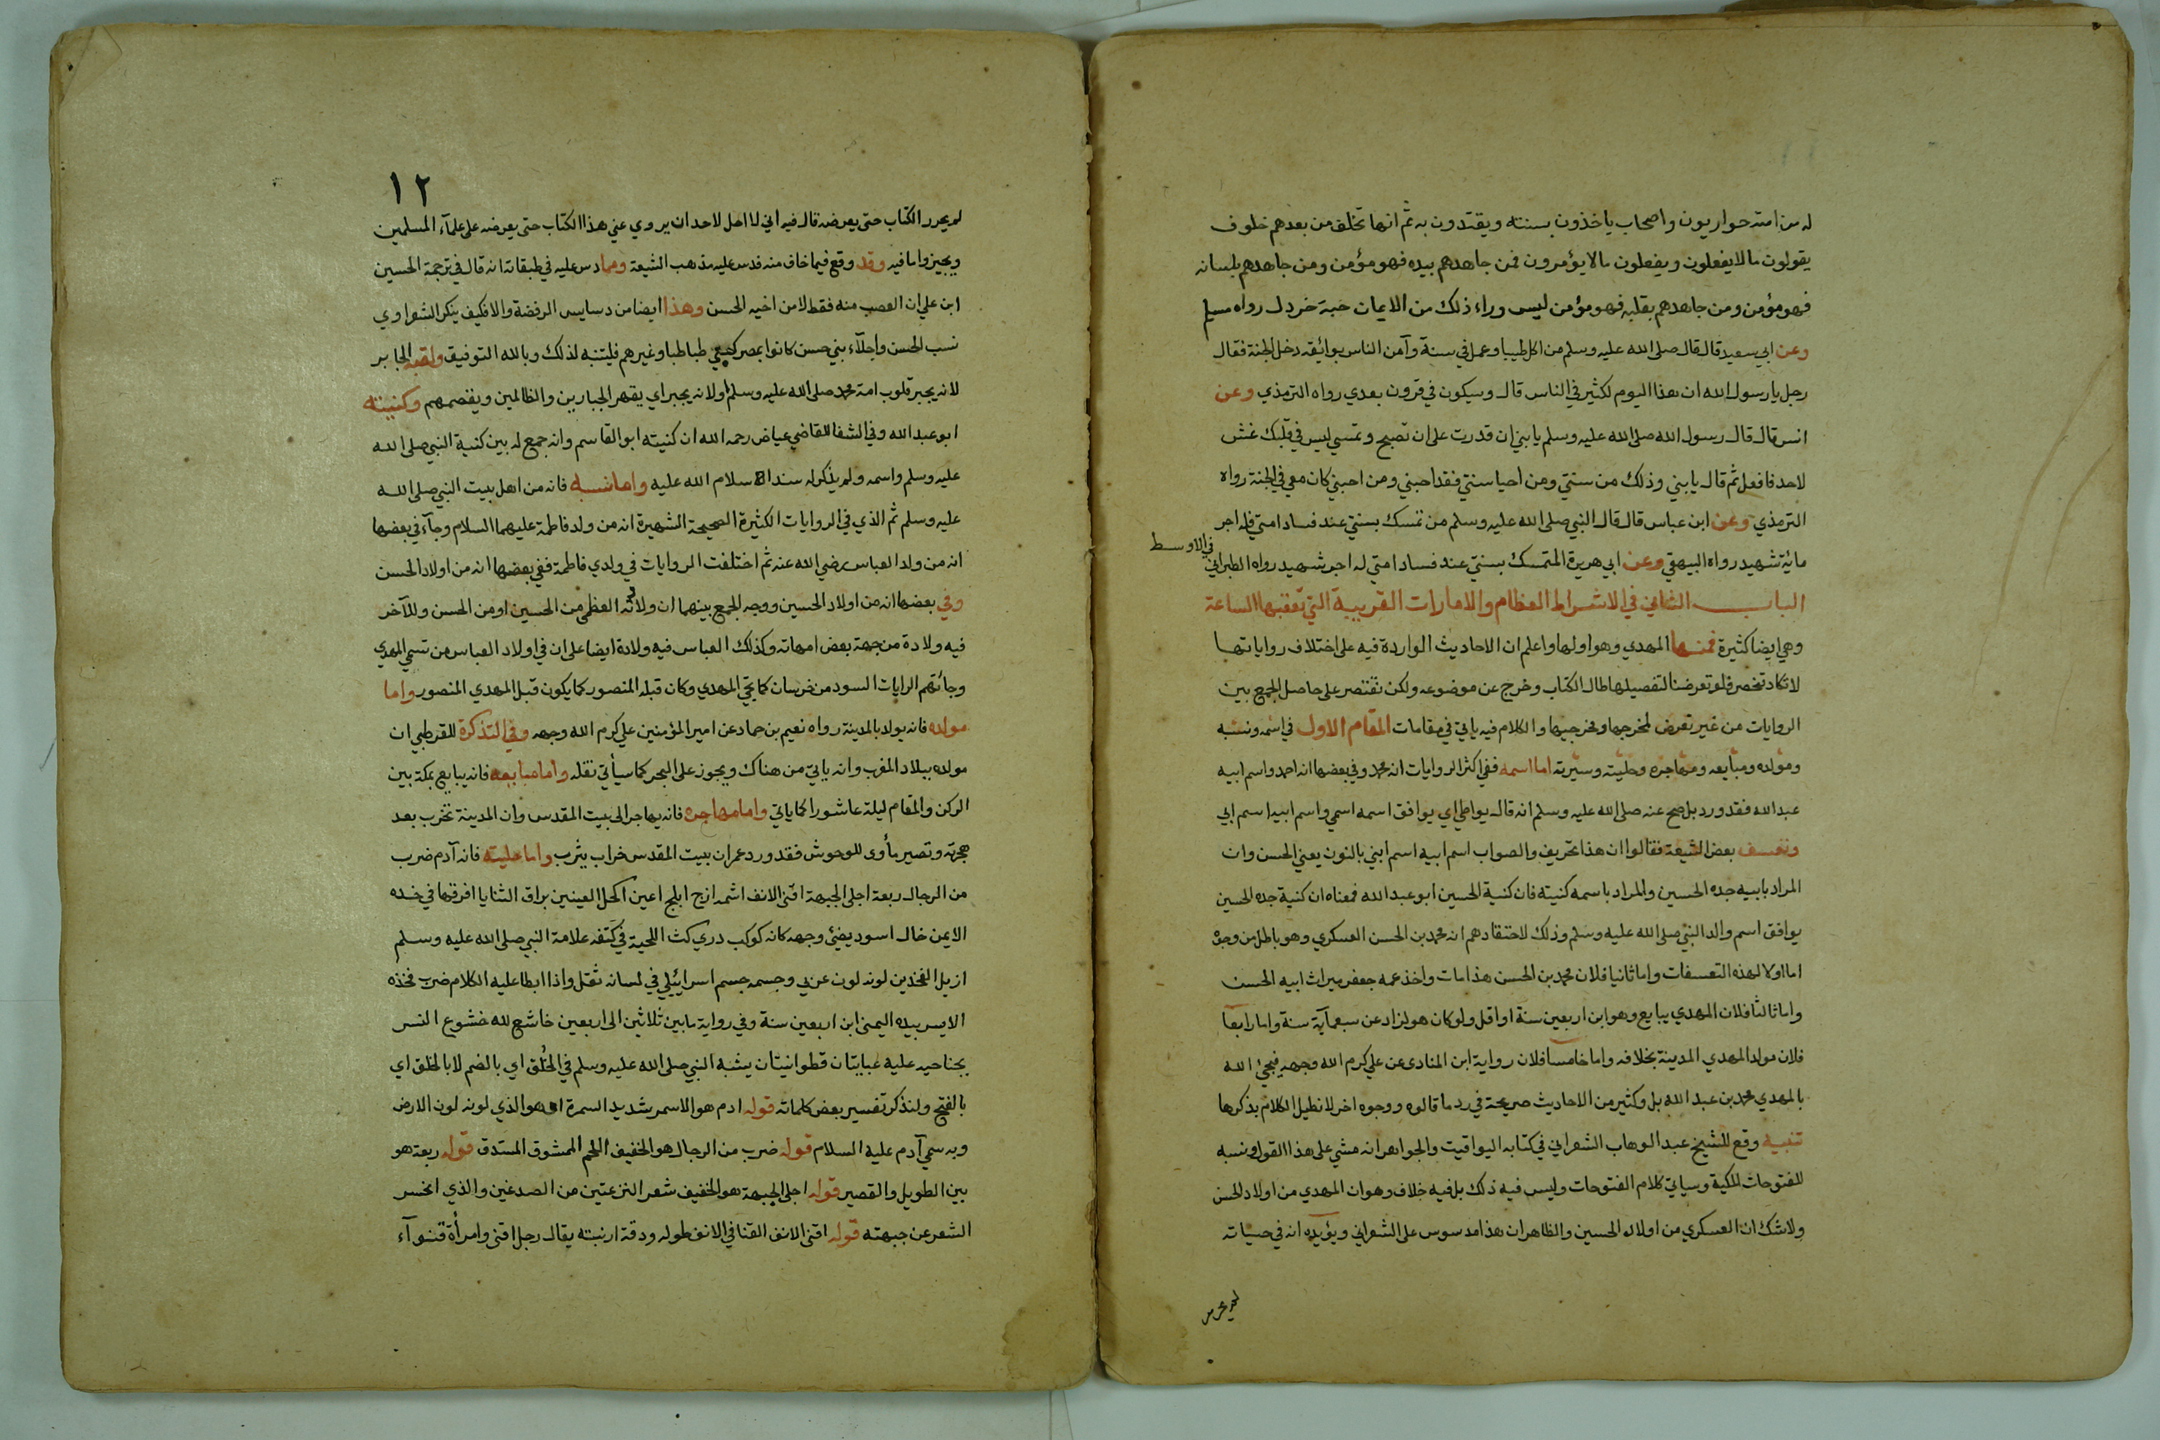 له من امته حواريون واصحاب ياخذون بسنته ويقتدون به ثم انها تخلف من بعدهم خلوف
يقولون ما لا يفعلون ويفعلون ما لا يؤمرون فمن جاهدهم بيده فهو مؤمن ومن جاهدهم بلسانه
فهو مؤمن ومن جاهدهم بقلبه فهو مؤمن ليس وراء ذلك من الايمان حبة خردل رواه مسلم
وعن ابي سعيد قال قال صلى الله عليه وسلم من اكل طيبا وعمل في سنة وآمن الناس بوائقه دخل الجنة فقال
رجل يا رسول الله ان هذا اليوم لكثير في الناس قال وسيكون في قرون بعدي رواه الترمذي وعن
انس قال قال رسول الله صلى الله عليه وسلم يا بني ان قدرت على ان تصبح وتمسي ليس في قلبك غش
لاحد فافعل ثم قال يا بني وذلك من سنتي ومن احيا سنتي فقد احبني ومن احبني كان معي في الجنة رواه
الترمذي وعن ابن عباس قال قال النبي صلى الله عليه وسلم من تمسك بسنتي عند فساد امتي فله اجر
مائة شهيد رواه البيهقي وعن ابي هريرة المتمسك بسنتي عند فساد امتي له اجر شهيد رواه الطبراني
في الاوسط
الباب الثاني في الاشراط العظام والامارات القريبة التي تعقبها الساعة
وهي ايضا كثيرة فمنها المهدي وهو اولها واعلم ان الاحاديث الواردة فيه على اختلاف رواياتها
لا تكاد تنحصر فلو تعرضنا لتفصيلها طال الكتاب وخرج عن موضوعه ولكن نقتصر على حاصل الجمع بين
الروايات من غير تعرض لمخرجها ومخرجيها والكلام فيه ياتي في مقامات المقام الاول في اسمه ونسبه
ومولده ومبايعه ومهاجره وحليته وسيرته اما اسمه ففي اكثر الروايات انه محمد وفي بعضها انه احمد واسم ابيه
عبد الله فقد ورد بل صح عنه صلى الله عليه وسلم انه قال يواطي اي يوافق اسمه اسمي واسم ابيه اسم ابي
وتعسف بعض الشيعة فقالوا ان هذا تحريف والصواب اسم ابيه اسم ابني بالنون يعني الحسن وان
المراد بابيه جده الحسين والمراد باسمه كنيته فان كنية الحسين ابو عبد الله فمعناه ان كنية جده الحسين
يوافق اسم والد النبي صلى الله عليه وسلم وذلك لاعتقادهم انه محمد بن الحسن العسكري وهو باطل من وجوه
اما اولا لهذه التعسفات واما ثانيا فلان محمد بن الحسن هذا مات واخذ عمه جعفر ميراث ابيه الحسن
واما ثالثا فلان المهدي يبايع وهو ابن اربعين سنة او اقل ولو كان هو لزاد عن سبعمآية سنة واما رابعا
فلان مولد المهدي المدينة بخلافه واما خامسا فلان رواية ابن المنادى عن علي كرم الله وجهه فيجئ الله
بالمهدي محمد بن عبد الله بل وكثير من الاحاديث صريحة في رد ما قالوه ووجوه اخر لا نطيل الكلام بذكرها
تنبيه وقع للشيخ عبد الوهاب الشعراني في كتابه اليواقيت والجواهر انه مشي على هذا القول ونسبه
للفتوحات المكية وسياتي كلام الفتوحات وليس فيه ذلك بل فيه خلاف وهو ان المهدي من اولاد الحسن
ولا شك ان العسكري من اولاد الحسين والظاهر ان هذا مدسوس على الشعراني ويؤيده انه في حسياته
لم يحرر
١٢
لم يحرر الكتاب حتى يعرضه قال فيه اني لا احل لاحد ان يروي عني هذا الكتاب حتى يعرضه على علمآء المسلمين
ويجيزوا ما فيه وقد وقع فيما خاف منه فدس عليه مذهب الشيعة ومما دس عليه في طبقاته انه قال في ترجمة الحسين
ابن علي ان العصب منه فقط لا من اخيه الحسن وهذا ايضا من دسايس الرفضة والا فكيف ينكر الشعراوي
نسب الحسن واجلآء بني حسن كانوا بعصر كبني طباطبا وغيرهم فليتنبه لذلك وبالله التوفيق ولقبه الجابر
لانه يجبر قلوب امة محمد صلى الله عليه وسلم ولانه يجبر اي يقهر الجبارين والظالمين ويقصمهم وكنيته
ابو عبد الله وفي الشفا للقاضي عياض رحمه الله ان كنيته ابو القاسم وانه جمع له بين كنية النبي صلى الله
عليه وسلم واسمه ولم يذكر له سندا سلام الله عليه واما نسبه فانه من اهل بيت النبي صلى الله
عليه وسلم ثم الذي في الروايات الكثيرة الصحيحة الشهيرة انه من ولد فاطمة عليهما السلام وجآء في بعضها
انه من ولد العباس رضي الله عنه ثم اختلفت الروايات في ولدي فاطمة ففي بعضها انه من اولاد الحسن
وفي بعضها انه من اولاد الحسين ووجه الجمع بينهما ان ولادته العظمى من الحسين او من الحسن وللآخر
فيه ولادة من جهة بعض امهاته وكذلك العباس فيه ولادة ايضا على ان في اولاد العباس من تسمي المهدي
وجائتهم الرايات السود من خرسان كما تجي المهدي وكان قبله المنصور كما يكون قبل المهدي المنصور واما
مولده فانه يولد بالمدينة رواه نعيم بن حماد عن امير المؤمنين علي كرم الله وجهه وفي التذكرة للقرطبي ان
مولده ببلاد المغرب وانه ياتي من هناك ويجوز على البحر كما سيأتي نقله واما مبايعه فانه يبايع بمكة بين
الركن والمقام ليلة عاشورا كما ياتي واما مهاجره فانه يهاجر الى بيت المقدس وان المدينة تخرب بعد
هجرته وتصير مأوى للوحوش فقد ورد عمران بيت المقدس خراب يثرب واما حليته فانه آدم ضرب
من الرجال ربعة اجلى الجبهة اقنى الانف اشمه ازج ابلج اعين اكحل العينين براق الثنايا افرقها في خده
الايمن خال اسود يضئ وجهه كانه كوكب دري كث اللحية في كتفه علامة النبي صلى الله عليه وسلم
ازيل الفخذين لونه لون عربي وجسمه جسم اسرائيلي في لسانه ثقل واذا ابطا عليه الكلام ضرب فخذه
الايسر بيده اليمنى ابن اربعين سنة وفي رواية ما بين ثلاثين الى اربعين خاشع لله خشوع النسر
بجناحيه عليه عبايتان قطوانيتان يشبه النبي صلى الله عليه وسلم في الخُلق اي بالضم لا بالخلق اي
بالفتح ولنذكر تفسير بعض كلماته قوله ادم هو الاسمر شديد السمرة او هو الذي لونه لون الارض
وبه سمي آدم عليه السلام قوله ضرب من الرجال هو الخفيف اللحم الممشوق المستدق قوله ربعة هو
بين الطويل والقصير قوله اجلى الجبهة هو الخفيف شعر النزعتين من الصدغين والذي انحسر
الشعر عن جبهته قوله اقنى الانف القنا في الانف طوله ودقة ارنبته يقال رجل اقنى وامرأة قنوآء